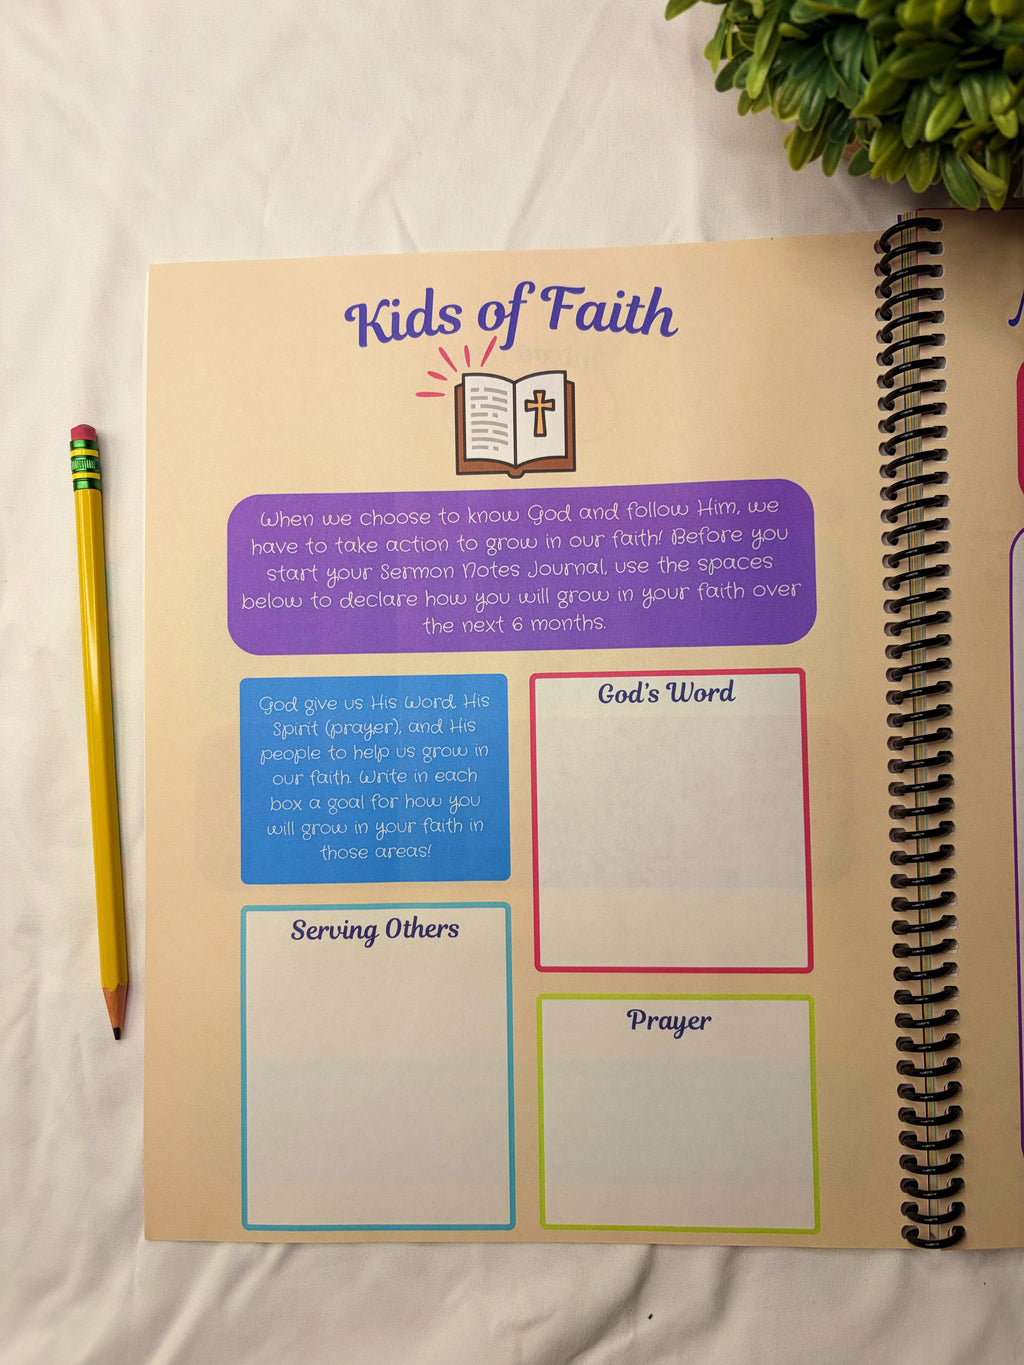 Kids of Faith
When we choose to know God and follow Him, we
have to take action to grow in our faith! Before you
start your Sermon Notes Journal, use the spaces
below to declare how you will grow in your faith over
the next 6 months.
God give us His Word, His
Spirit (prayer), and His
people to help us grow in
our faith. Write in each
box a goal for how you
will grow in your faith in
those areas!
God's Word
Serving Others
Prayer